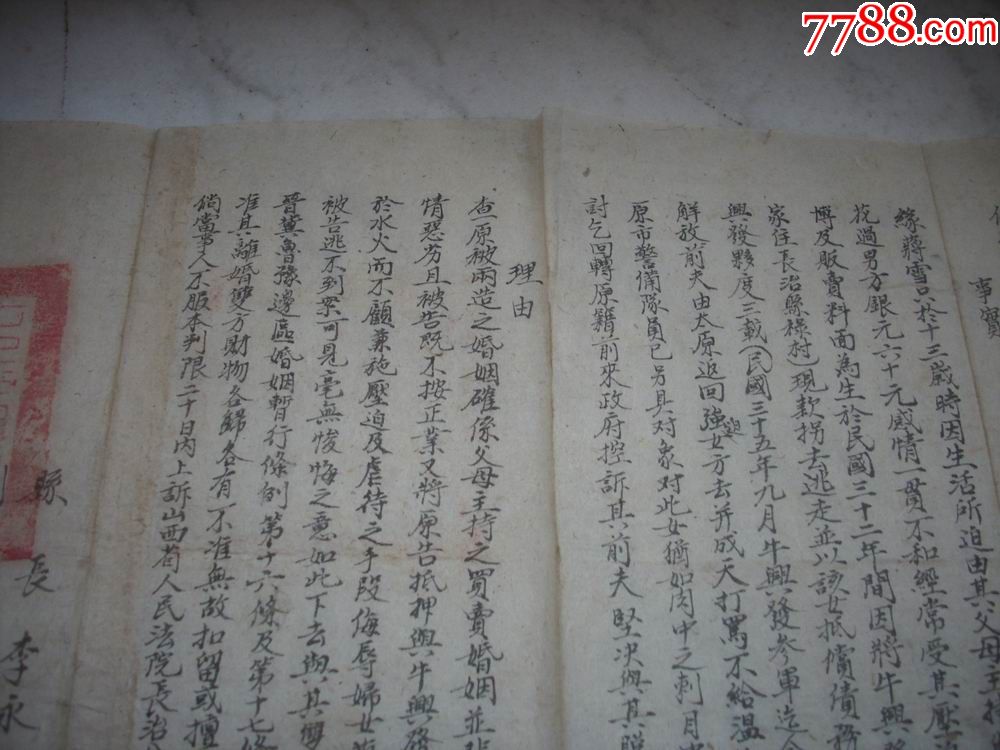 7788.com
事實
緣蔣雪只於十三歲時因生活所迫由其父母主持
花過男方銀元六十元感情一貫不和經常受其壓
博及販賣料面為生於民國三十二年間因將牛興
家住長治縣 村)現款拐去逃走並以該女抵償債務
興發夥度三載(民國三十五年九月牛興發參軍迄今
解放前夫由太原返回強迫女方去并成天打罵不給溫
原市警備隊員已另具对象对此女猶如肉中之刺月
討乞回轉原籍前來政府控訴其前夫堅決與其脫
理由
查原被兩造之婚姻確係父母主持之買賣婚姻並非
情惡劣且被告既不按正業又將原告抵押與牛興發
於水火而不顧兼施壓迫及虐待之手段侮辱婦女
被告逃不到案可見毫無悛悔之意如此下去與其
晉冀魯豫邊區婚姻暫行條例第十六條及第十七條
准其離婚雙方財物各歸各有不准無故扣留或擅
倘當事人不服本判限二十日內上訴山西省人民法院長治
縣長李永